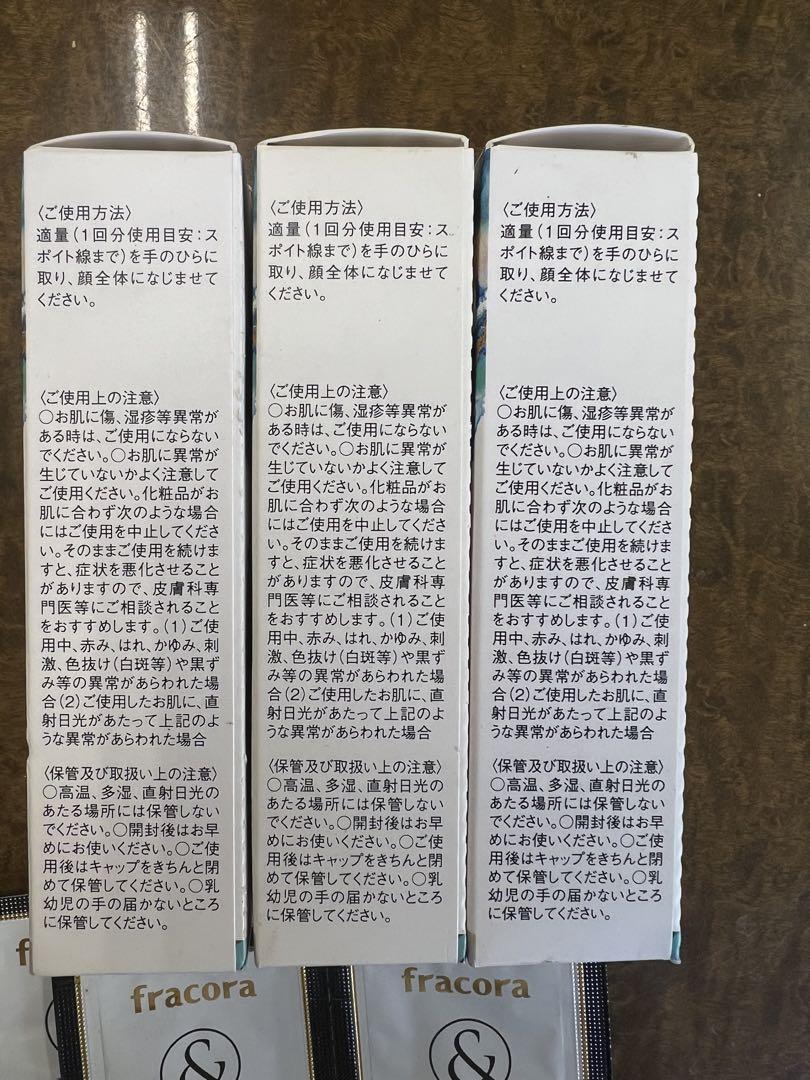 〈ご使用方法〉
適量(1回分使用目安:ス
ポイト線まで)を手のひらに
取り、顔全体になじませて
ください。
〈ご使用上の注意〉
○お肌に傷、湿疹等異常が
ある時は、ご使用にならない
でください。○お肌に異常が
生じていないかよく注意して
ご使用ください。化粧品がお
肌に合わず次のような場合
にはご使用を中止してくださ
い。そのままご使用を続けま
すと、症状を悪化させること
がありますので、皮膚科専
門医等にご相談されること
をおすすめします。(1)ご使
用中、赤み、はれ、かゆみ、刺
激、色抜け(白斑等)や黒ず
み等の異常があらわれた場
合(2)ご使用したお肌に、直
射日光があたって上記のよ
うな異常があらわれた場合
〈保管及び取扱い上の注意〉
○高温、多湿、直射日光の
あたる場所には保管しない
でください。○開封後はお早
めにお使いください。○ご使
用後はキャップをきちんと閉
めて保管してください。○乳
幼児の手の届かないところ
に保管してください。
〈ご使用方法〉
適量(1回分使用目安:ス
ポイト線まで)を手のひらに
取り、顔全体になじませて
ください。
〈ご使用上の注意〉
○お肌に傷、湿疹等異常が
ある時は、ご使用にならない
でください。○お肌に異常が
生じていないかよく注意して
ご使用ください。化粧品がお
肌に合わず次のような場合
にはご使用を中止してくださ
い。そのままご使用を続けま
すと、症状を悪化させること
がありますので、皮膚科専
門医等にご相談されること
をおすすめします。(1)ご使
用中、赤み、はれ、かゆみ、刺
激、色抜け(白斑等)や黒ず
み等の異常があらわれた場
合(2)ご使用したお肌に、直
射日光があたって上記のよ
うな異常があらわれた場合
〈保管及び取扱い上の注意〉
○高温、多湿、直射日光の
あたる場所には保管しない
でください。○開封後はお早
めにお使いください。○ご使
用後はキャップをきちんと閉
めて保管してください。○乳
幼児の手の届かないところ
に保管してください。
〈ご使用方法〉
適量(1回分使用目安:ス
ポイト線まで)を手のひらに
取り、顔全体になじませて
ください。
〈ご使用上の注意〉
○お肌に傷、湿疹等異常が
ある時は、ご使用にならない
でください。○お肌に異常が
生じていないかよく注意して
ご使用ください。化粧品がお
肌に合わず次のような場合
にはご使用を中止してくださ
い。そのままご使用を続けま
すと、症状を悪化させること
がありますので、皮膚科専
門医等にご相談されること
をおすすめします。(1)ご使
用中、赤み、はれ、かゆみ、刺
激、色抜け(白斑等)や黒ず
み等の異常があらわれた場
合(2)ご使用したお肌に、直
射日光があたって上記のよ
うな異常があらわれた場合
〈保管及び取扱い上の注意〉
○高温、多湿、直射日光の
あたる場所には保管しない
でください。○開封後はお早
めにお使いください。○ご使
用後はキャップをきちんと閉
めて保管してください。○乳
幼児の手の届かないところ
に保管してください。
f
fracora
&
fracora
&